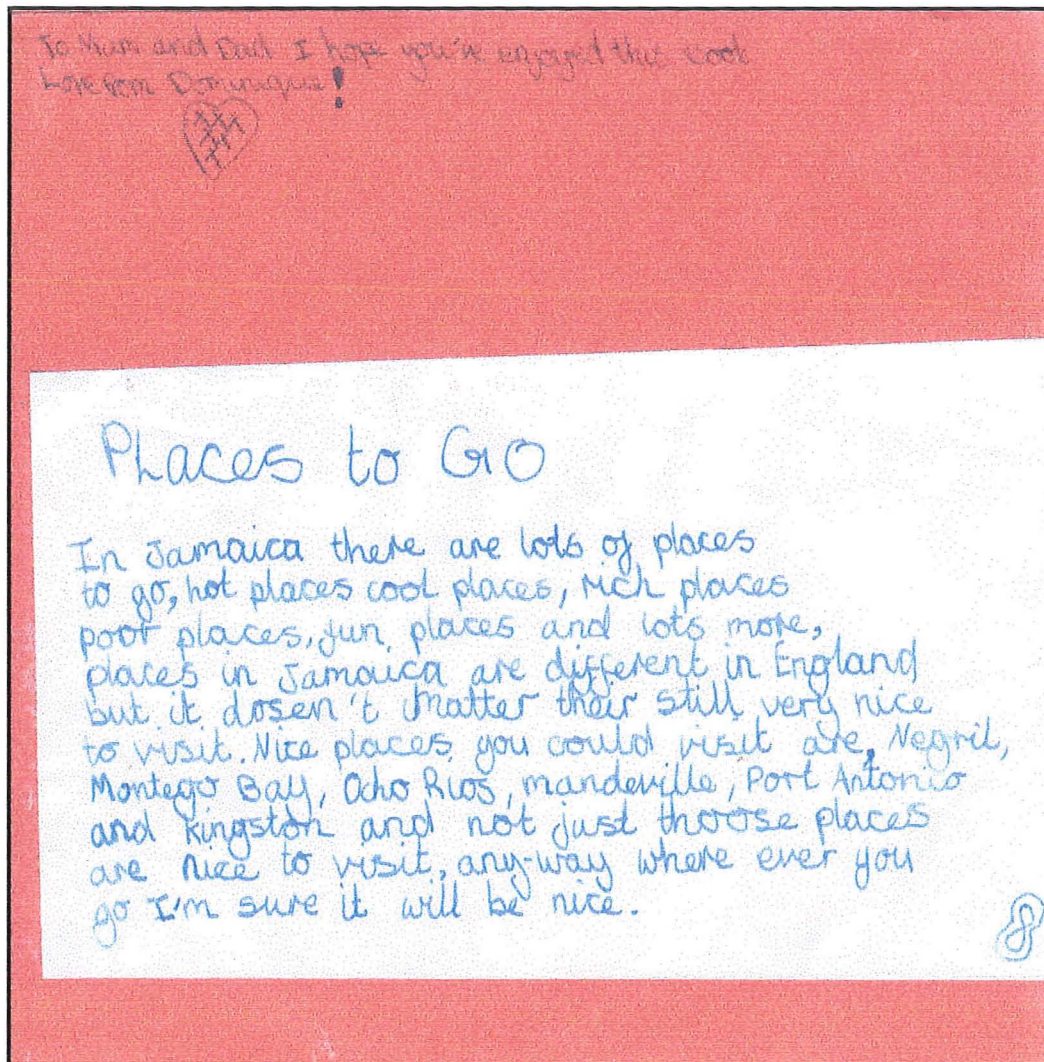 To Mum and Dad I hope you've enjoyed this cool
Love from Dominique!
Places to Go
In Jamaica there are lots of places
to go, hot places cool places, rich places
poor places, fun places and lots more,
places in Jamaica are different in England
but it dosen't matter their still very nice
to visit. Nice places you could visit are, Negril,
Montego Bay, Ocho Rios, mandeville, Port Antonio
and Kingston and not just thoose places
are nice to visit, any-way where ever you
go I'm sure it will be nice.
8